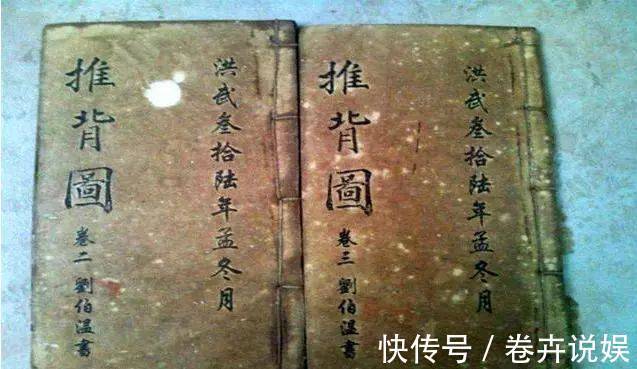 推背圖
卷二 劉伯温書
洪武叁拾陆年孟冬月
推背圖
卷三 劉伯温書
洪武叁拾陆年孟冬月
快传号 / 卷卉说娱